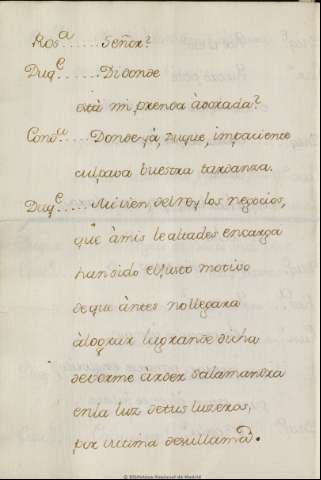 Ros.ª......Señor?
Duq.e......Di donde
está mi prenda àdorada?
Cond.ª....Donde yá, Duque, impaciente
culpaba buestra tardanza.
Duq.e.....Mi vien, del rey los negocios,
que à mis lealtades encarga
han sido el justo motibo
de que àntes no llegara
à lograr la grande dicha
de berme àrder Salamandra
en la luz de tus luzeros,
por victima de su llama.
© Biblioteca Nacional de Madrid